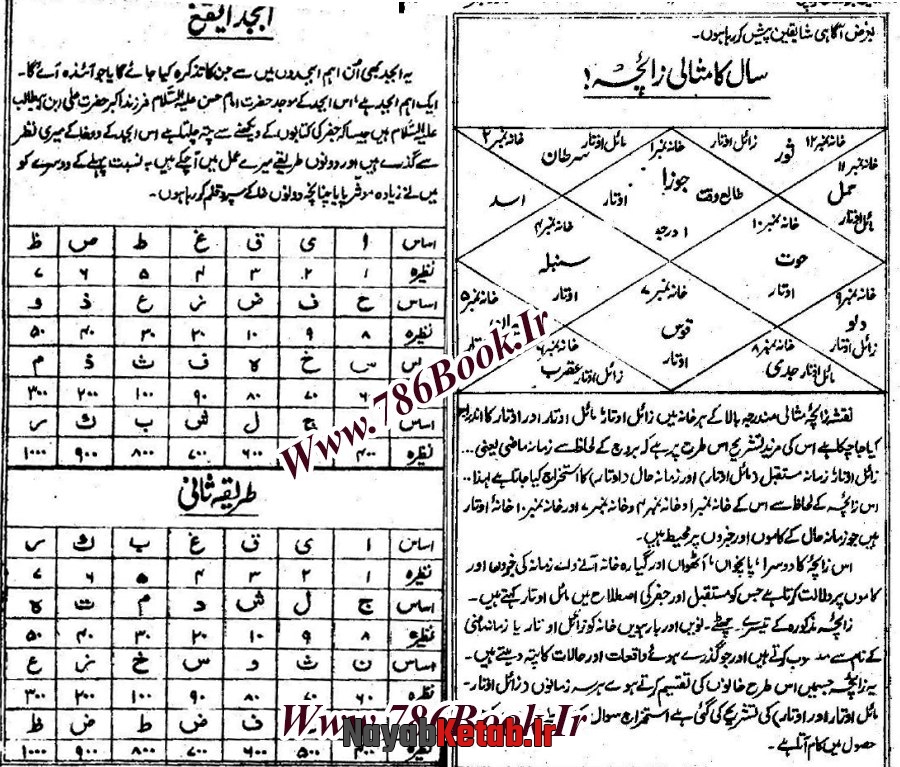 بغرض آگاہی شایقین پیش کر رہا ہوں۔
سال کا مثالی زائچہ!
خانہ نمبر ۲
مائل اوتار
سرطان
خانہ نمبر ۱
زائل اوتار
ثور
خانہ نمبر ۱۲
خانہ نمبر ۱۱
حمل
مائل اوتار
جوزا
طالع وقت
اوتار
۱ درجہ
اسد
خانہ نمبر ۴
سنبلہ
اوتار
خانہ نمبر ۱۰
حوت
اوتار
خانہ نمبر ۷
قوس
اوتار
خانہ نمبر ۹
دلو
زائل اوتار
خانہ نمبر ۸
جدی
مائل اوتار
خانہ نمبر ۵
خانہ نمبر ۶
عقرب
زائل اوتار
نقشہ زائچہ مثالی مندرجہ بالا کے ہر خانہ میں زائل اوتار، مائل اوتار اور اوتار کا اندراج
کیا جا چکا ہے اس کی مزید تشریح اس طرح پر ہے کہ بروج کے لحاظ سے زمانہ ماضی یعنی...
زائل اوتار، زمانہ مستقبل (مائل اوتار) اور زمانہ حال (اوتار) کا استخراج کیا جاتا ہے لہذا..
اس زائچہ کے لحاظ سے اس کے خانہ نمبر ۱ و خانہ نمبر ۴ و خانہ نمبر ۷ اور خانہ نمبر ۱۰ خانۂ اوتار
ہیں جو زمانہ حال کے کاموں اور خبروں پر محیط ہیں۔
اس زائچہ کا دوسرا، پانچواں، آٹھواں اور گیارہ خانہ آنے والے زمانہ کی خبروں اور
کاموں پر دلالت کرتا ہے جس کو مستقبل اور جفر کی اصطلاح میں مائل اوتار کہتے ہیں۔
زائچہ مذکورہ کے تیسرے۔ چھٹے۔ نویں اور بارہویں خانہ کو زائل اوتار یا زمانہ ماضی
کے نام سے منسوب کرتے ہیں اور جو گذرے ہوئے واقعات اور حالات کا پتہ دیتے ہیں۔
یہ زائچہ جسمیں اس طرح خانوں کی تقسیم کرتے ہوے ہر سہ زمانوں (زائل اوتار۔
مائل اوتار اور اوتار) کی تشریح کی گئی ہے استخراج سوال
حصول میں کام آتا ہے۔
ابجد ایقغ
یہ ابجد بھی اُن اہم ابجدوں میں سے جن کا تذکرہ کیا جائے گا یا جو آئندہ آے گا۔
ایک اہم ابجد ہے، اس ابجد کے موجد حضرت امام حسن علیہ السلام فرزند اکبر حضرت علی ابن ابیطالب
علیہ السلام ہیں جیسا کہ جفر کی کتابوں کے دیکھنے سے پتہ چلتا ہے اس ابجد کے دو خاکے میری نظر
سے گذرے ہیں اور دونوں طریقے میرے عمل میں آ چکے ہیں بہ نسبت پہلے کے دوسرے کو
میں نے زیادہ موثر پایا چنانچہ دونوں خاکے سپرد قلم کر رہا ہوں۔
اساس ا ی ق غ ط ص ظ
نظیرہ ۱ ۲ ۳ ۴ ۵ ۶ ۷
اساس ح ف ض ز ع ذ و
نظیرہ ۸ ۹ ۱۰ ۲۰ ۳۰ ۴۰ ۵۰
س خ ہ ف ث ذ م
۶۰ ۷۰ ۸۰ ۹۰ ۱۰۰ ۲۰۰ ۳۰۰
اساس ج ل ش ب ک ر
نظیرہ ۴۰۰ ۶۰۰ ۷۰۰ ۸۰۰ ۹۰۰ ۱۰۰۰
طریقہ ثانی
اساس ا ی ق غ ب ک ر
نظیرہ ۱ ۲ ۳ ۴ ۵ ۶ ۷
اساس ج ل ش د م ت ہ
نظیرہ ۸ ۹ ۱۰ ۲۰ ۳۰ ۴۰ ۵۰
اساس ن ث و س خ ز ع
نظیرہ ۶۰ ۷۰ ۸۰ ۹۰ ۱۰۰ ۲۰۰ ۳۰۰
ف ض ط ض ظ
نظیرہ ۴۰۰ ۵۰۰ ۶۰۰ ۷۰۰ ۸۰۰ ۹۰۰ ۱۰۰۰
Www.786Book.Ir
Www.786Book.Ir
NayabKetab.ir